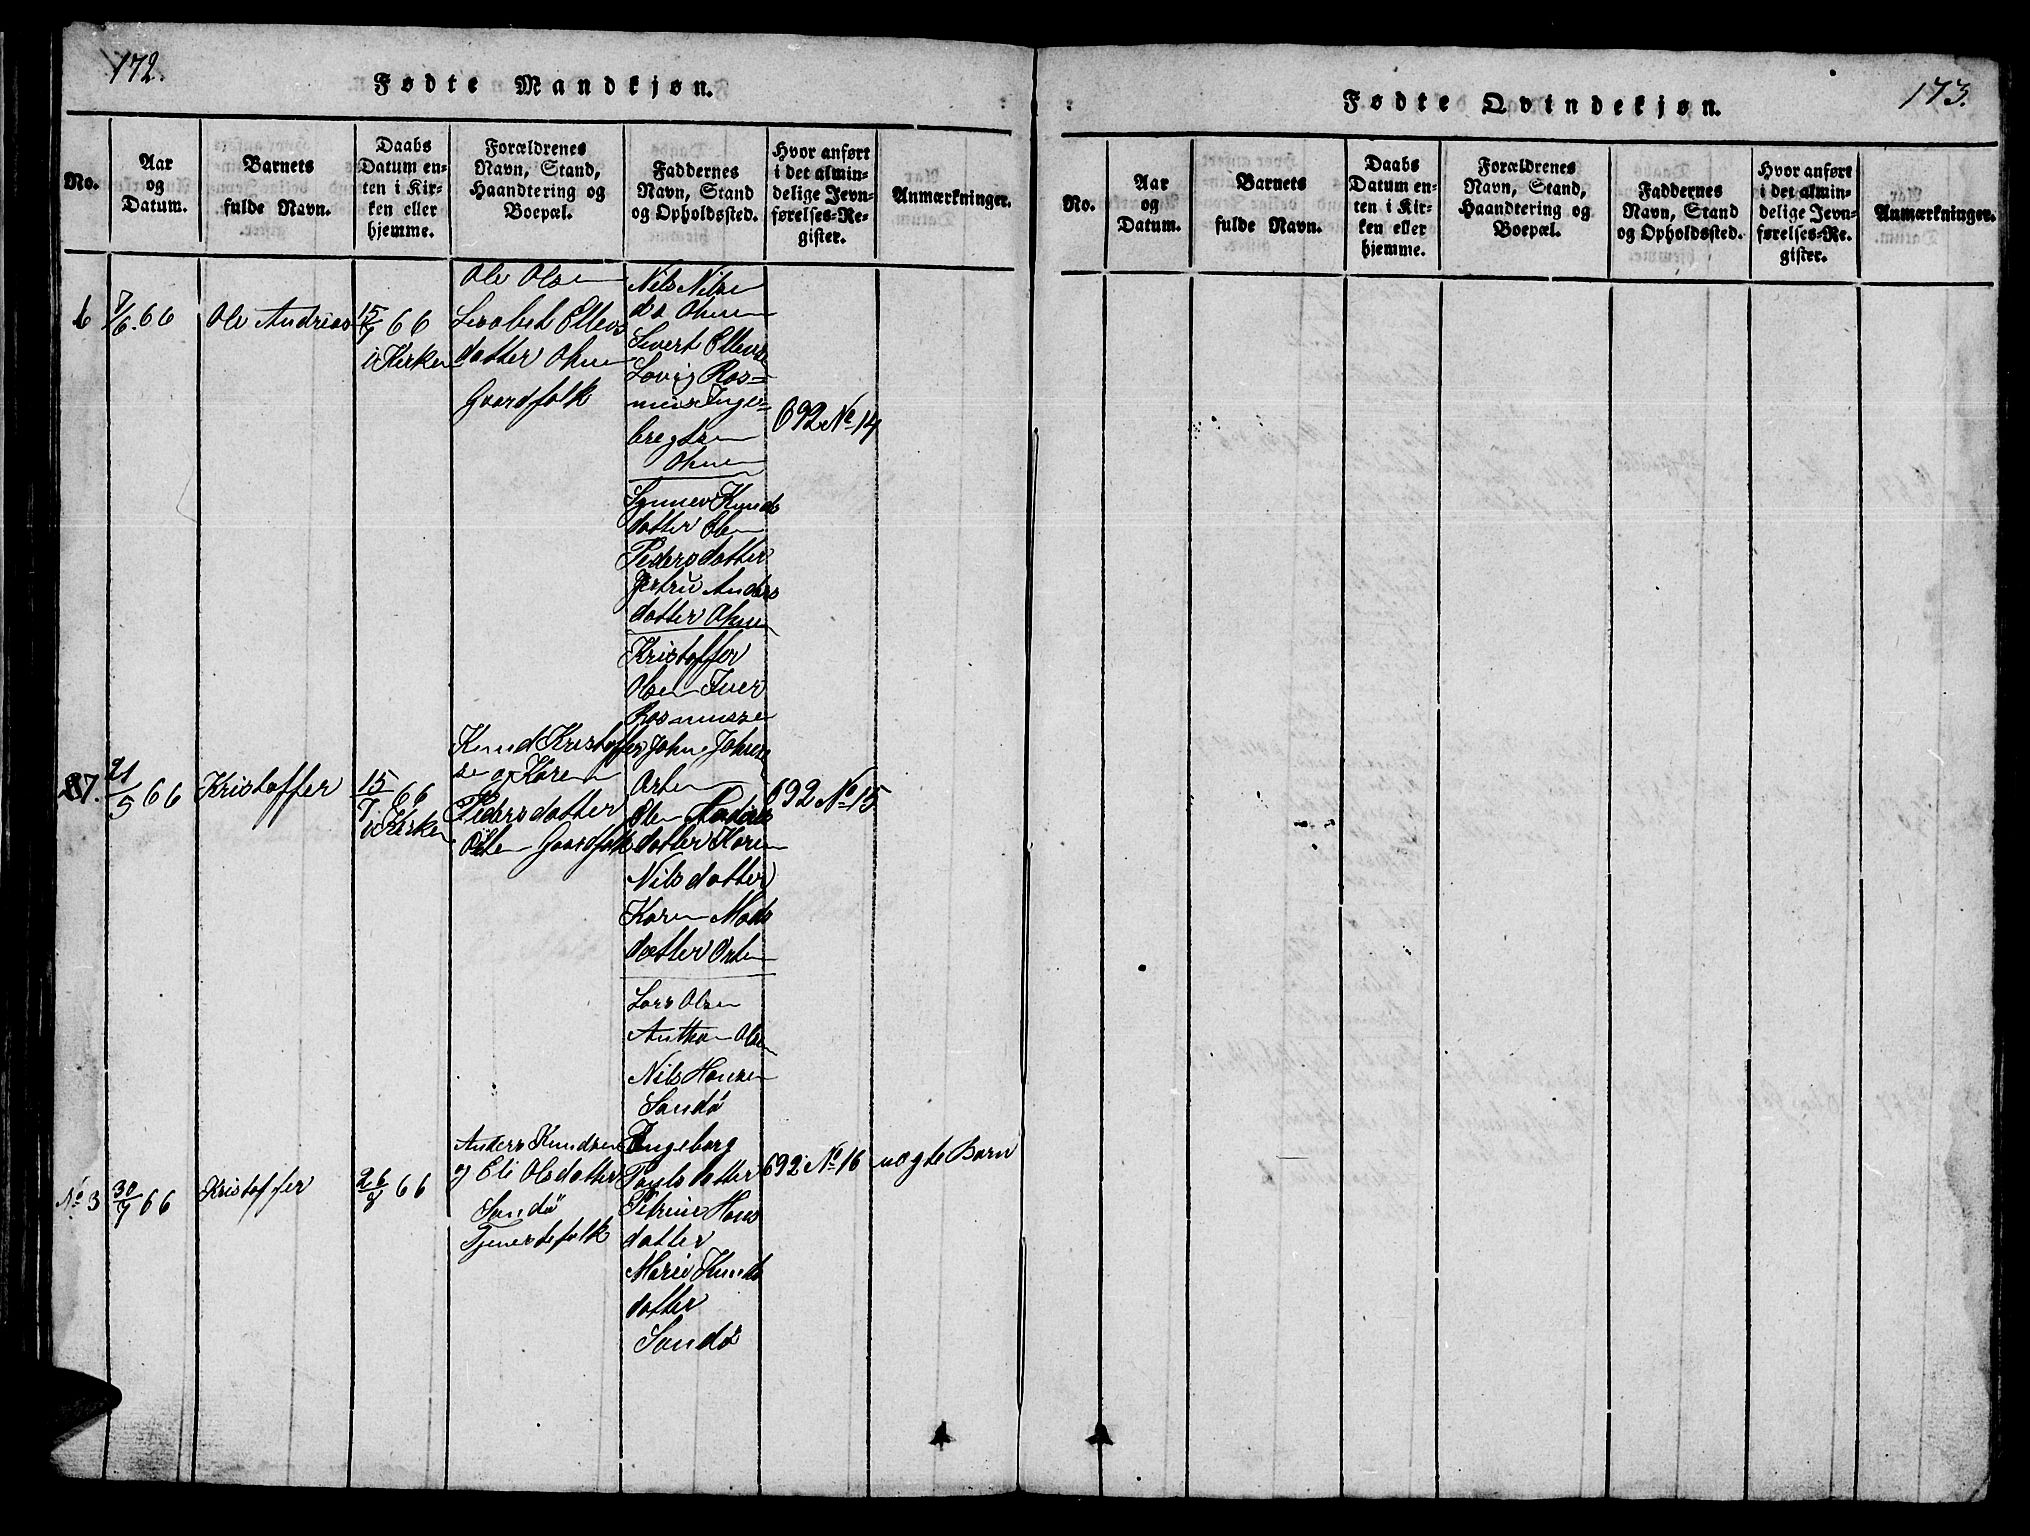 172.
Fødte Mandkjøn.
No.
Aar
og
Datum.
Barnets
fulde Navn.
Daabs
Datum en-
ten i Kir-
ken eller
hjemme.
Forældrenes
Navn, Stand,
Haandtering og
Boepæl.
Faddernes
Navn, Stand
og Opholdssted.
Hvor anført
i det almin-
delige Jevn-
førelses-Re-
gister.
Anmærkninger.
6
7/6 66
Ole Andreas
15/7 66
i Kirken
Ole Olsen
Ellevs
datter Ohnen
Gaardfolk
Nils Nilsen
Ohnen
Sivert Ellevsen
Ras=
mus Inge=
bregtsen
Ohnen
Synnev Knuds
datter Olen
Pedersdatter
Anders
datter Ohnen
692 No 14
7.
21/5 66
Kristoffer
15/7 66
i Kirken
Knud Kristoffer
sen og Karen
Pedersdatter
Orten Gaardfolk
Kristoffer
Olsen Iver
Rasmussen
John Johnsen
Orten
Olen Anders
datter Karen
Nilsdatter
Karen Mads
datter Orten
692 No 15
No 3
30/7 66
Kristoffer
66
Anders Knudsen
og Eli Olsdatter
Sandø
Tjenestefolk
Lars Olsen
Anthon Olsen
Nils Hansen
Sandø
Ingeborg
Paulsdatter
Petrine Hans
datter
Marie Knuds
datter
Sandø
692 No 16
uægte Barn
173.
Fødte Qvindekjøn.
No.
Aar
og
Datum.
Barnets
fulde Navn.
Daabs
Datum en-
ten i Kir-
ken eller
hjemme.
Forældrenes
Navn, Stand,
Haandtering og
Boepæl.
Faddernes
Navn, Stand
og Opholdssted.
Hvor anført
i det almin-
delige Jevn-
førelses-Re-
gister.
Anmærkninger.